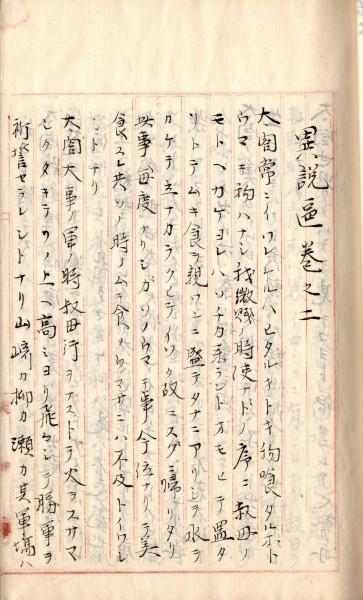 異説區卷之二
太閤常ニイワレケルハヒタルキトキ物喰タルホト
ウマキ物ハナシ我微賤時使ナドノ序ニ叔母ノ
モトヘカケヨレハソチカ来ラントオモヒテ置タ
リトテムキ食ヲ親ワンニ盛テタナニアリシヲ水ヲ
カケテ立ナカラクヒテイソク故ニスグニ帰リタリ
此事毎度ナリシガソノウマキ事今位ナリテ美
食スレ共ソノ時ノムキ食ノウマサニハ不及トイワレ
シトナリ
太閤大事ノ軍ノ時叔母行ヲナストテ火ヲスサマ
シクタキテソノ上ヘ高ミヨリ飛ケンテ勝軍ヲ
祈誓セラレシトナリ山崎カ柳カ瀬カ其軍場ハ